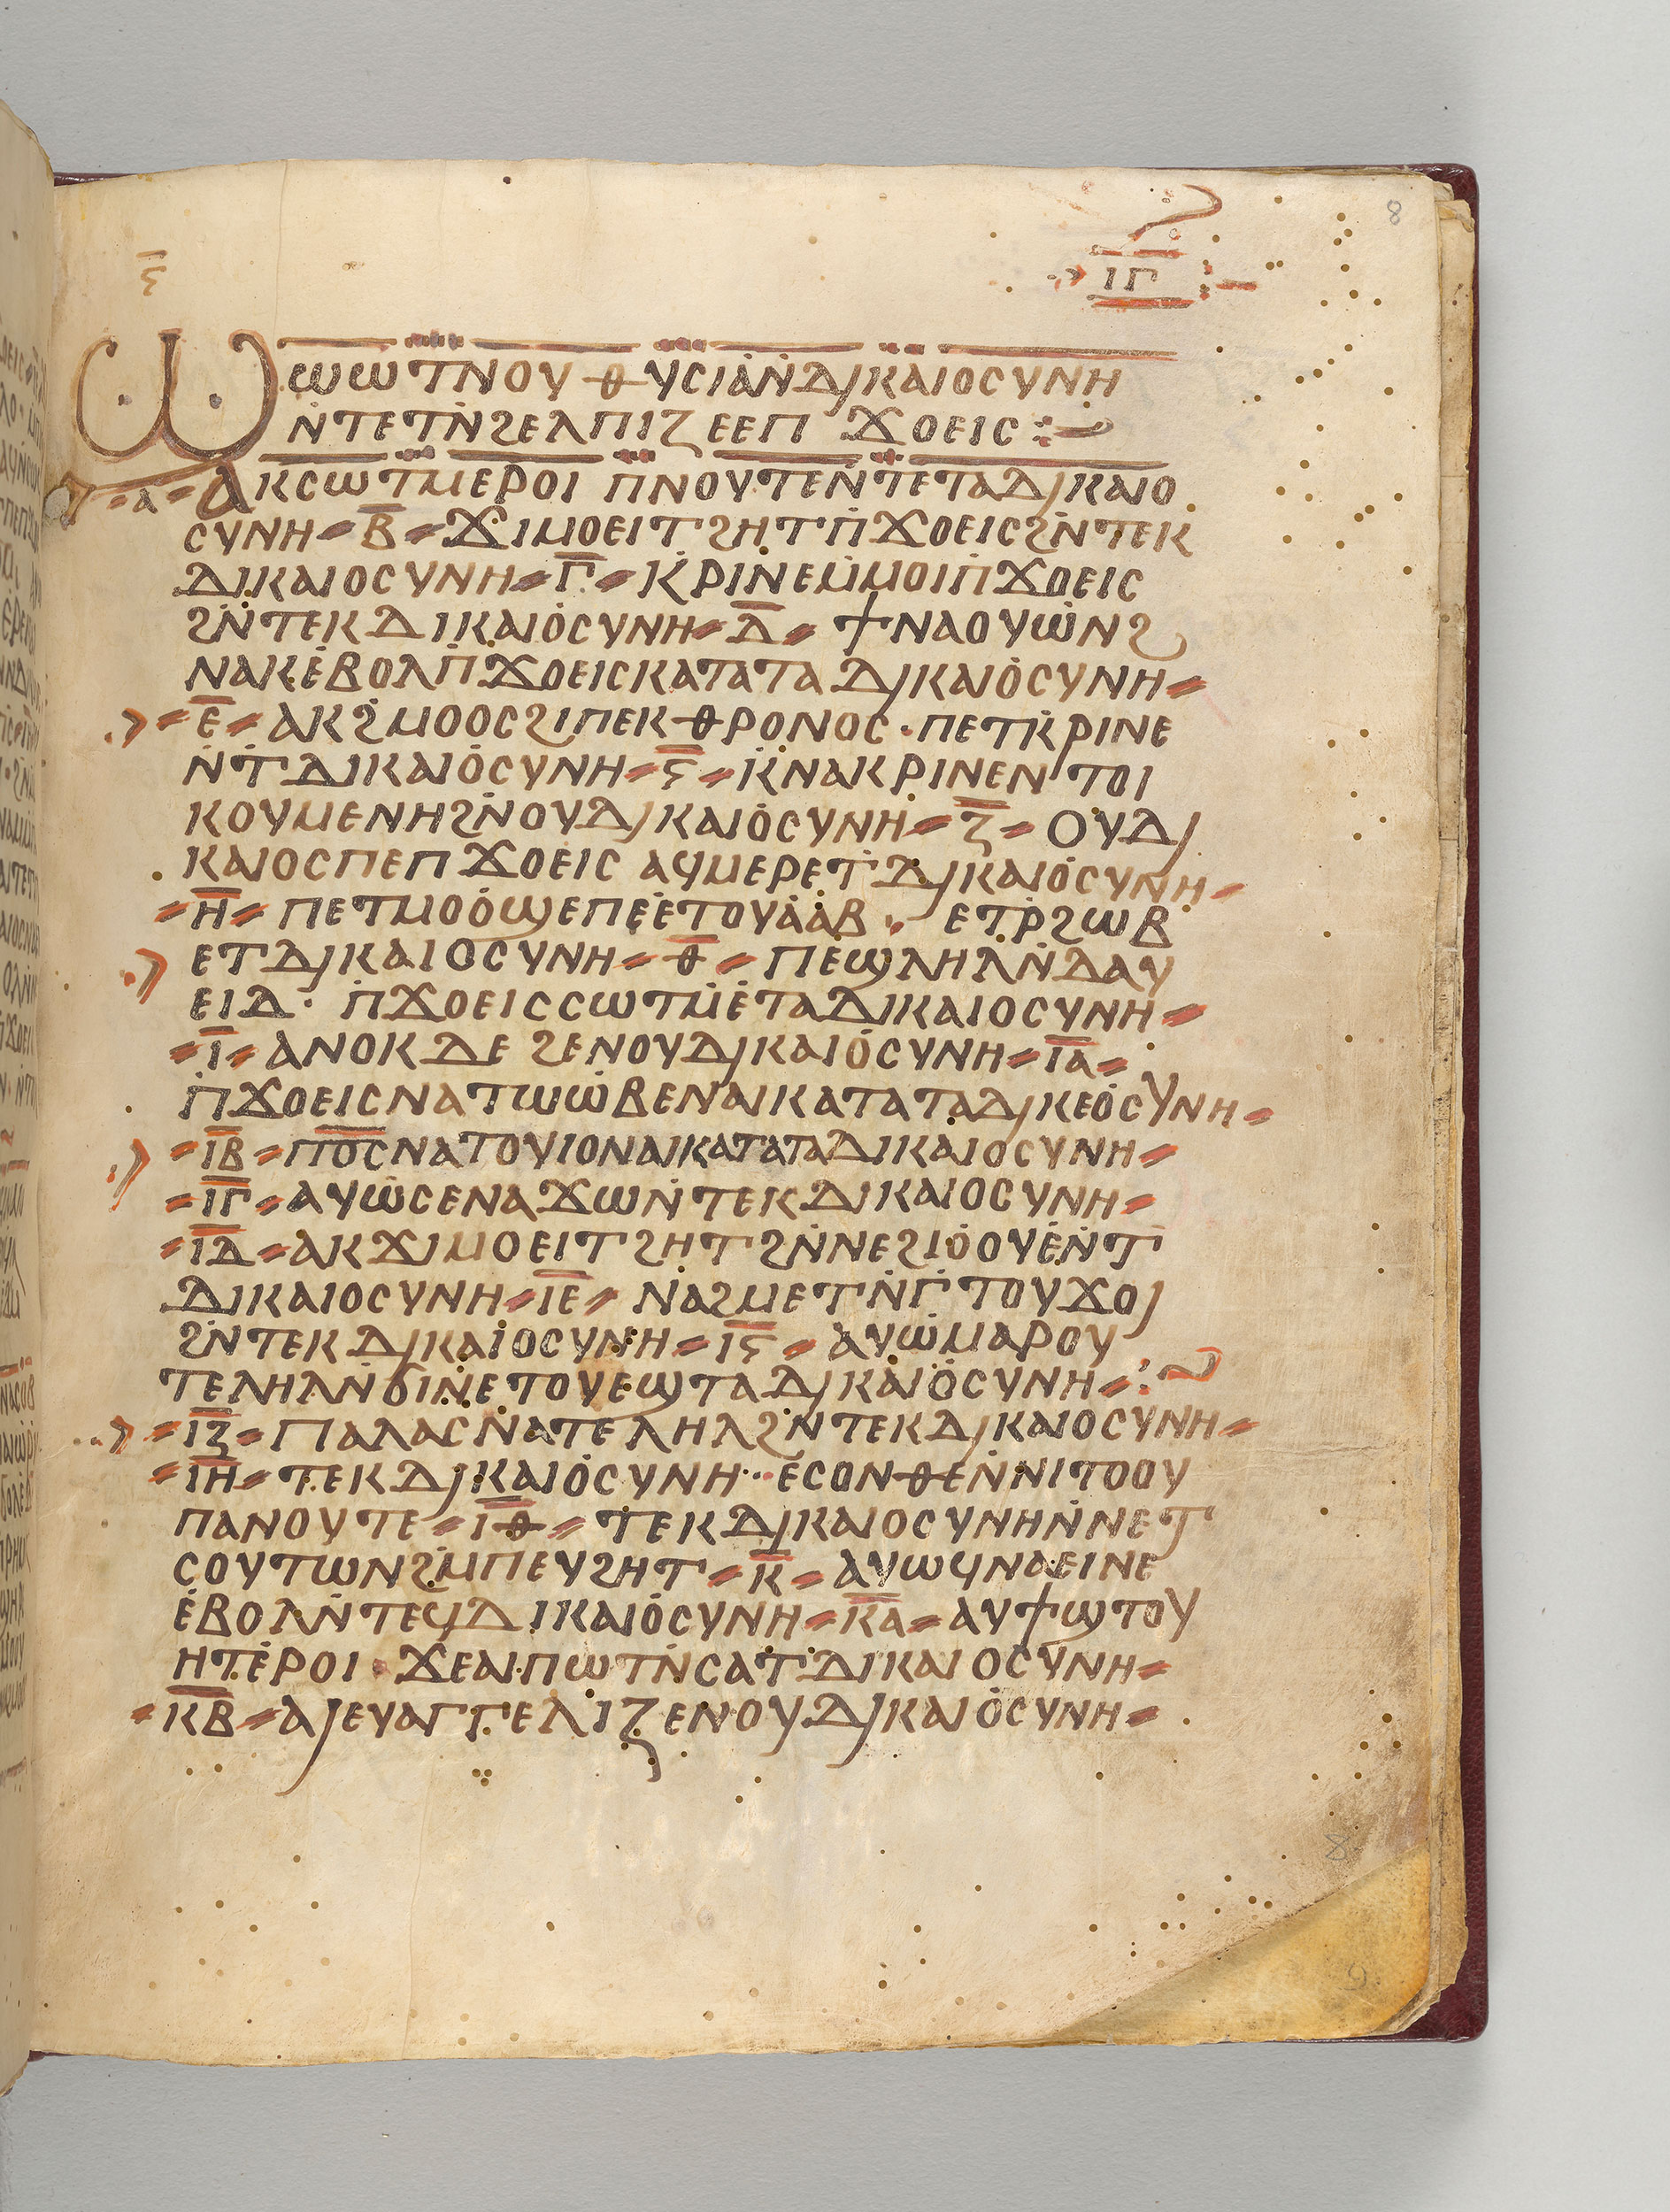 8
ⲋ̅
ⲓⲅ
ϣⲱⲱⲧⲛⲟⲩⲑⲩⲥⲓⲁⲛ̇ⲇⲓⲕⲁⲓⲟⲥⲩⲛⲏ
ⲛ̇ⲧⲉⲧⲛ̇ϩⲉⲗⲡⲓⲍⲉⲉⲡϫⲟⲉⲓⲥ
ⲁ ⲁⲕⲥⲱⲧⲙⲉⲣⲟⲓ ⲡ̇ⲛⲟⲩⲧⲉⲛ̇ⲧⲉⲧⲁⲇⲓⲕⲁⲓⲟ
ⲥⲩⲛⲏ ⲃ̅ ϫⲓⲙⲟⲉⲓⲧϩⲏⲧⲡ̇ϫⲟⲉⲓⲥϩⲛ̇ⲧⲉⲕ
ⲇⲓⲕⲁⲓⲟⲥⲩⲛⲏ ⲅ̅ ⲕ̇ⲣⲓⲛⲉⲙ̇ⲙⲟⲓⲡ̇ϫⲟⲉⲓⲥ
ϩⲛ̇ⲧⲉⲕⲇⲓⲕⲁⲓⲟ̇ⲥⲩⲛⲏ ⲇ̅ ϯⲛⲁⲟⲩⲱ̇ⲛϩ
ⲛⲁⲕⲉ̇ⲃⲟⲗⲡ̇ϫⲟⲉⲓⲥⲕⲁⲧⲁⲧⲁⲇⲓⲕⲁⲓⲟ̇ⲥⲩⲛⲏ
ⲉ̅ ⲁⲕϩ̇ⲙⲟⲟⲥϩⲓⲡⲉⲕⲑⲣⲟⲛⲟⲥ · ⲡⲉⲧⲕ̇ⲣⲓⲛⲉ
ⲛ̇ⲧ̇ⲇⲓⲕⲁⲓⲟ̇ⲥⲩⲛⲏ ⲋ̅ ⲕ̇ⲛⲁⲕⲣⲓⲛⲉⲛⲧⲟⲓ
ⲕⲟⲩⲙⲉⲛⲏϩⲛ̇ⲟⲩⲇⲓⲕⲁⲓⲟ̇ⲥⲩⲛⲏ ⲍ̅ ⲟⲩⲇⲓ
ⲕⲁⲓⲟⲥⲡⲉⲡϫⲟⲉⲓⲥ ⲁϥⲙⲉⲣⲉⲧ̇ⲇⲓⲕⲁⲓⲟ̇ⲥⲩⲛⲏ
ⲏ̅ ⲡⲉⲧⲙⲟⲟ̇ϣⲉⲡⲉ̇ⲉⲧⲟⲩⲁ̇ⲁ̇ⲃ · ⲉⲧⲣ̇ϩⲱⲃ
ⲉⲧⲇⲓⲕⲁⲓⲟⲥⲩⲛⲏ ⲑ̅ ⲡⲉϣⲗⲏⲗⲛ̇ⲇⲁⲩ
ⲉⲓⲇ · ⲡ̇ϫⲟⲉⲓⲥⲥⲱⲧⲙ̇ⲉ̇ⲧⲁⲇⲓⲕⲁⲓⲟⲥⲩⲛⲏ
ⲓ̅ ⲁⲛⲟⲕⲇⲉϩⲉⲛⲟⲩⲇⲓⲕⲁⲓⲟ̇ⲥⲩⲛⲏ ⲓ̅ⲁ̅
ⲡ̇ϫⲟⲉⲓⲥⲛⲁⲧⲱⲱ̇ⲃⲉⲛⲁⲓⲕⲁⲧⲁⲧⲁⲇⲓⲕⲉⲟ̇ⲥⲩⲛⲏ
ⲓ̅ⲃ̅ ⲡⲟ̅ⲥ̅ⲛⲁⲧⲟⲩⲓⲟⲛⲁⲓⲕⲁⲧⲁⲧⲁⲇⲓⲕⲁⲓⲟⲥⲩⲛⲏ
ⲓ̅ⲅ̅ ⲁⲩⲱ̇ⲥⲉⲛⲁϫⲱⲛ̇ⲧⲉⲕⲇⲓⲕⲁⲓⲟⲥⲩⲛⲏ
ⲓ̅ⲇ̅ ⲁⲕϫⲓⲙⲟⲉⲓⲧϩⲏⲧϩⲛ̇ⲛⲉϩⲓⲟ̇ⲟⲩⲉ̇ⲛ̇ⲧ̇
ⲇⲓⲕⲁⲓⲟⲥⲩⲛⲏ ⲓ̅ⲉ̅ ⲛⲁϩⲙⲉⲧⲛ̇ⲅ̇ⲧⲟⲩϫⲟⲓ
ϩⲛ̇ⲧⲉⲕⲇⲓⲕⲁⲓⲟⲥⲩⲛⲏ ⲓ̅ⲋ̅ ⲁⲩⲱ̇ⲙⲁⲣⲟⲩ
ⲧⲉⲗⲏⲗⲛ̇ϭⲓⲛⲉⲧⲟⲩⲉϣⲧⲁⲇⲓⲕⲁⲓⲟ̇ⲥⲩⲛⲏ
ⲓ̅ⲍ̅ ⲡⲁⲗⲁⲥⲛⲁⲧⲉⲗⲏⲗϩⲛ̇ⲧⲉⲕⲇⲓⲕⲁⲓⲟⲥⲩⲛⲏ
ⲓ̅ⲏ̅ ⲧⲉⲕⲇⲓⲕⲁⲓⲟ̇ⲥⲩⲛⲏ · ⲉⲥⲟⲛⲑⲉⲛ̇ⲛⲓⲧⲟⲟⲩ
ⲡⲁⲛⲟⲩⲧⲉ ⲓ̅ⲑ̅ ⲧⲉⲕⲇⲓⲕⲁⲓⲟⲥⲩⲛⲏⲛ̇ⲛⲉⲧ
ⲥⲟⲩⲧⲱⲛϩⲙ̇ⲡⲉⲩϩⲏⲧ ⲕ̅ ⲁⲩⲱϥⲛⲁⲉⲓⲛⲉ
ⲉ̇ⲃⲟⲗⲛ̇ⲧⲉϥⲇⲓⲕⲁⲓⲟ̇ⲥⲩⲛⲏ ⲕ̅ⲁ̅ ⲁⲩϯϣⲧⲟⲩ
ⲏⲧⲉ̇ⲣⲟⲓ · ϫⲉⲁⲓⲡⲱⲧⲛ̇ⲥⲁⲧ̇ⲇⲓⲕⲁⲓⲟⲥⲩⲛⲏ
ⲕ̅ⲃ̅ ⲁⲓⲉⲩⲁⲅⲅⲉⲗⲓⲍⲉⲛⲟⲩⲇⲓⲕⲁⲓⲟ̇ⲥⲩⲛⲏ
8
9